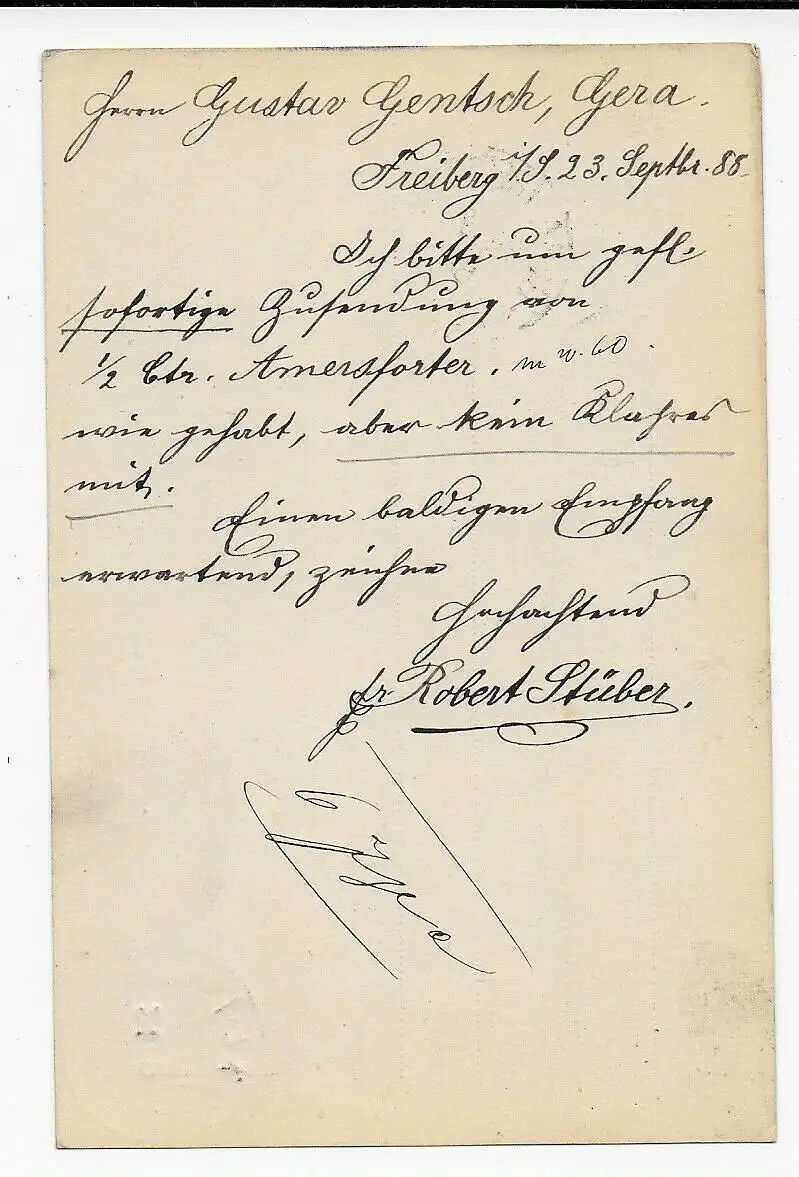 Herrn Gustav Gentsch, Gera.
Freiberg i/S. 23. Septbr. 88
Ich bitte um gefl.
sofortige Zusendung von
1/2 Ctr. Amersforter.
wie gehabt, aber kein
mit.
Einen baldigen Empfang
erwartend, zeichne
Hochachtend
Robert Stüber.